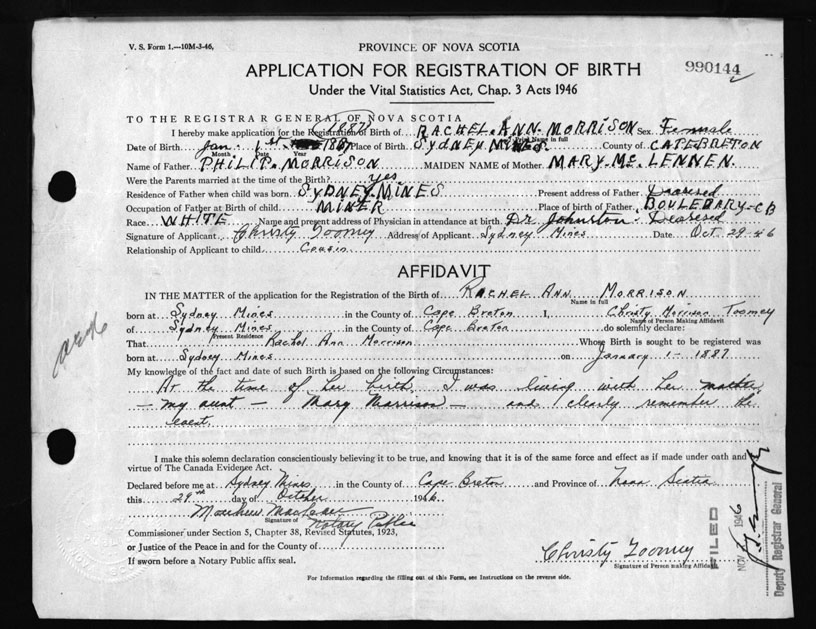 V. S. Form 1.—10M-3-46.
PROVINCE OF NOVA SCOTIA
APPLICATION FOR REGISTRATION OF BIRTH
990144
Under the Vital Statistics Act, Chap. 3 Acts 1946
TO THE REGISTRAR GENERAL OF NOVA SCOTIA
(1887)
I hereby make application for the Registration of Birth of RACHEL ANN MORRISON Sex Female
Date of Birth Jan. 1st 1887 Place of Birth SYDNEY MINES County of CAPE BRETON
Month Year Name in full
Name of Father PHILIP MORRISON MAIDEN NAME of Mother MARY Mc LENNEN
Were the Parents married at the time of the Birth? yes
Residence of Father when child was born SYDNEY MINES Present address of Father Deceased
Occupation of Father at Birth of Child MINER Place of birth of Father BOULEDARY-CB
Race WHITE Name and present address of Physician in attendance at birth Dr Johnston Deceased
Signature of Applicant Christy Toomey Address of Applicant Sydney Mines Date Oct 29-46
Relationship of Applicant to child Cousin
AFFIDAVIT
IN THE MATTER of the application for the Registration of the Birth of RACHEL ANN MORRISON
Name in full
born at Sydney Mines in the County of Cape Breton I, Christy Morrison Toomey
Name of Person Making Affidavit
of Sydney Mines in the County of Cape Breton do solemnly declare:
Present Residence
That Rachel Ann Morrison Whose Birth is sought to be registered was
born at Sydney Mines on January 1- 1887
My knowledge of the fact and date of such Birth is based on the following Circumstances:
At the time of her birth I was living with her mother
— my aunt — Mary Morrison — and I clearly remember the
event.
I make this solemn declaration conscientiously believing it to be true, and knowing that it is of the same force and effect as if made under oath and
virtue of The Canada Evidence Act.
Declared before me at Sydney Mines in the County of Cape Breton and Province of Nova Scotia
this 29 day of October 1946
Signature of Notary Public
Commissioner under Section 5, Chapter 38, Revised Statutes, 1923,
or Justice of the Peace in and for the County of
If sworn before a Notary Public affix seal.
Christy Toomey
Signature of Person making Affidavit
For Information regarding the filling out of this Form, see Instructions on the reverse side.
FILED
NOV 1946
Deputy Registrar General